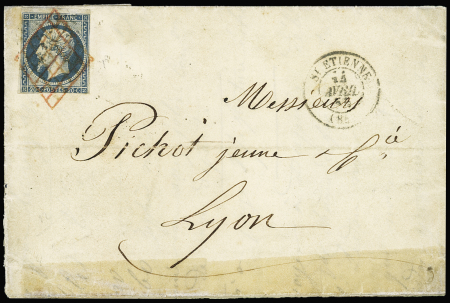 EMPIRE FRANC
ST ETIENNE
AVRIL
Messieurs
Pichot jeune & Cie
Lyon